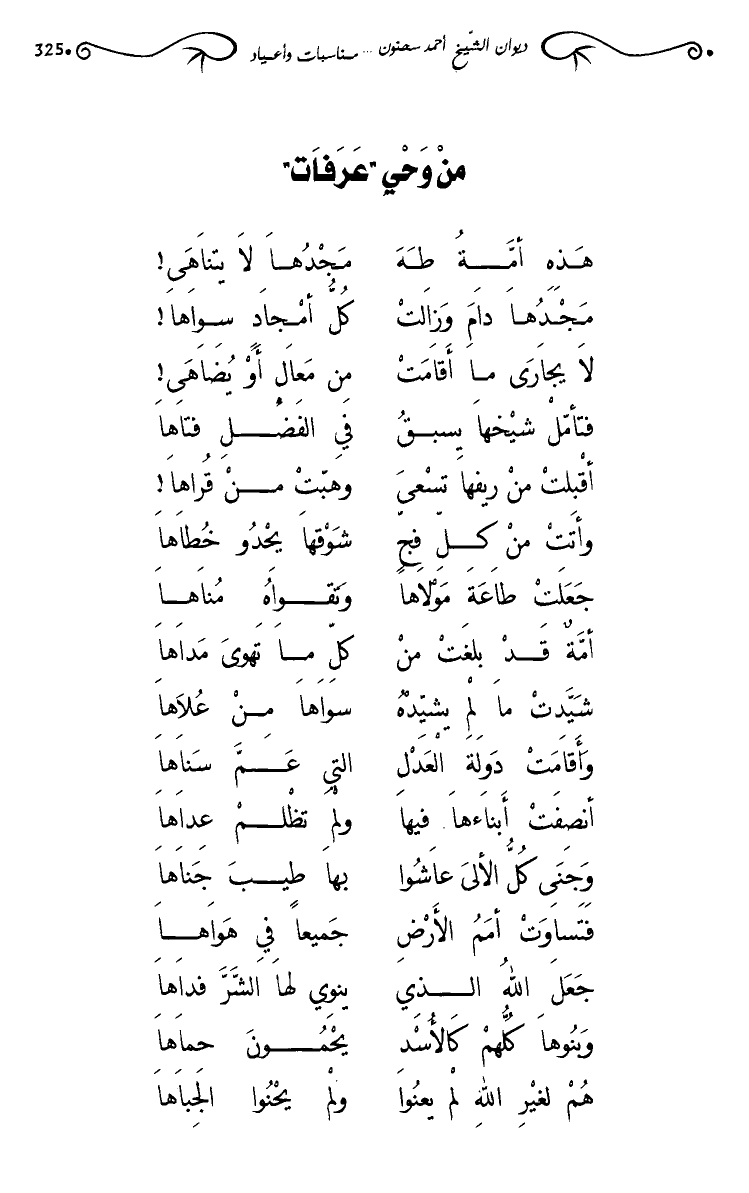 ديوان الشّيخ أحمد سحنون ... مناسبات وأعياد 325
مِنْ وَحْيِ "عَرَفَات"
هَذِهِ أمَّةُ طهَ مَجْدُهَا لاَ يتنَاهَى!
مَجْدُهَا دامَ وَزَالتْ كُلُّ أمْجادٍ سوَاهَا!
لاَ يجارَى مَا أَقامَتْ مِن مَعَالٍ أَوْ يُضَاهَى!
فتأمّلْ شيْخهَا يسبقُ في الفَضْلِ فتَاهَا
أقْبلتْ منْ ريفهَا تسْعىَ وهبّتْ مِنْ قُراهَا!
وأتتْ منْ كلّ فجّ شوْقهَا يحْدُو خُطاهَا
جَعَلتْ طاعَةَ مَوْلاهَا وَتقواهُ مُناهَا
أمّةٌ قدْ بلغَتْ منْ كلّ مَا تهوىَ مَداهَا
شيَّدتْ مَا لمْ يشيّدْهُ سوَاهَا مِنْ عُلاَهَا
وَأقامَتْ دَولةَ العَدْلِ التي عَمَّ سَناهَا
أنصفَتْ أَبناءهَا فيهَا ولمْ تظْلمْ عدَاهَا
وَجنَى كُلُّ الألىَ عاشُوا بهَا طيبَ جَناهَا
فَتَساوَتْ أمَمُ الأَرْضِ جَميعاً في هوَاهَا
جَعَلَ اللهُ الذي ينوي لهَا الشَّرَّ فدَاهَا
وَبنُوهَا كُلُّهمْ كَالأُسْد يحْمُونَ حمَاهَا
هُمْ لغَيْرِ اللهِ لمْ يعنُوا ولمْ يحْنُوا الجبَاهَا